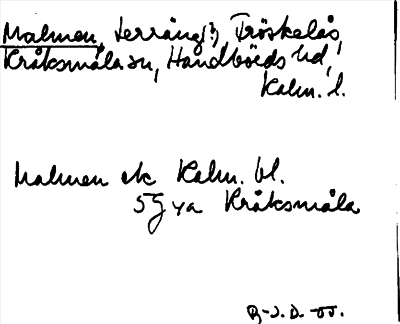 Malmen, terräng(?), Tröskelås,
Kråksmåla sn, Handbörds hd,
Kalm. l.
Malmen ek Kalm. bl.
5G ya Kråksmåla